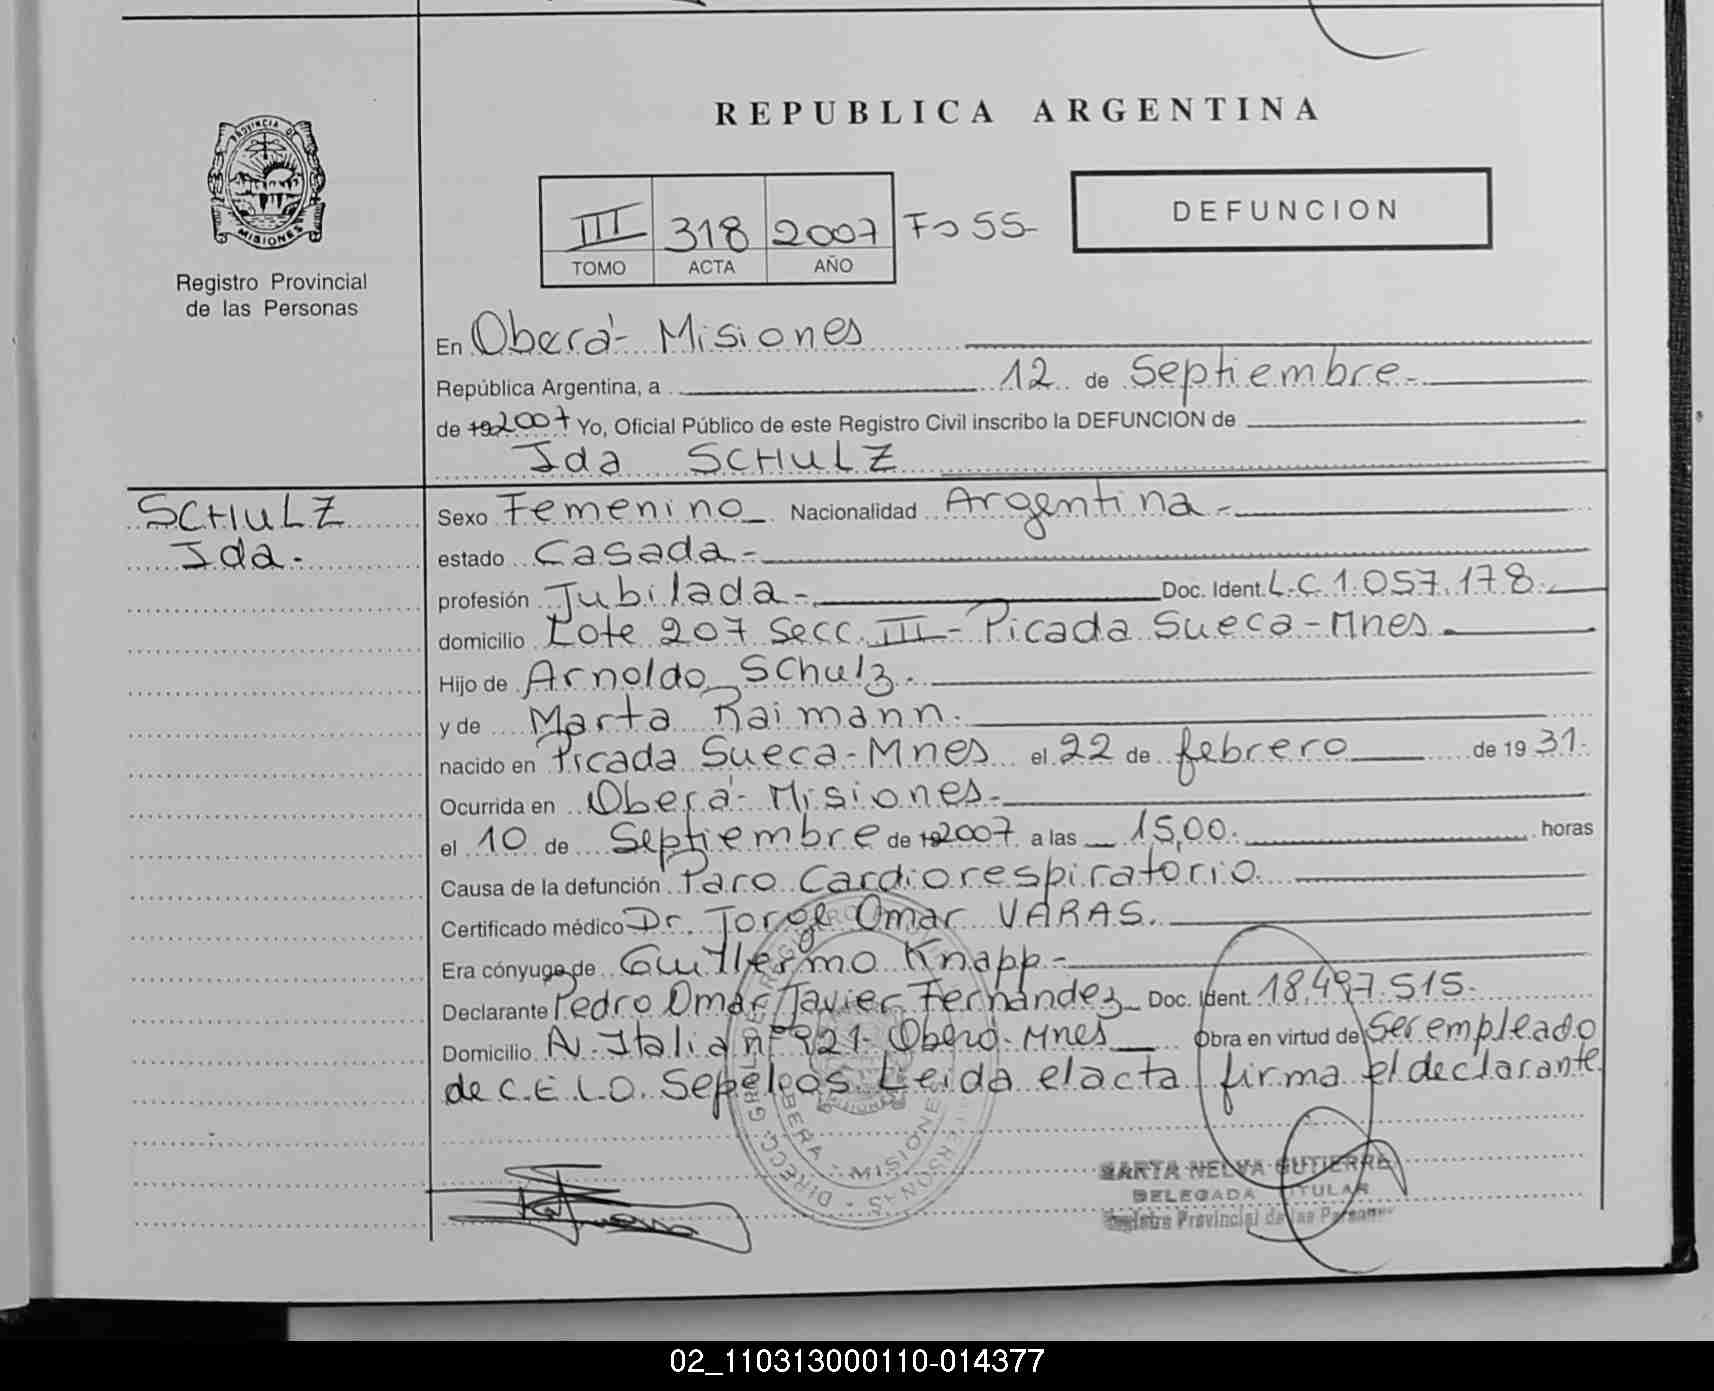 REPUBLICA ARGENTINA
PROVINCIA DE
MISIONES
Registro Provincial
de las Personas
III 318 2007 Fo 55-
TOMO ACTA AÑO
DEFUNCION
En Oberá- Misiones
República Argentina, a 12 de Septiembre.-
de 192007 Yo, Oficial Público de este Registro Civil inscribo la DEFUNCION de
Ida SCHULZ
SCHULZ
Ida.
Sexo Femenino Nacionalidad Argentina.-
estado Casada.-
profesión Jubilada.- Doc. Ident. L.C. 1.057.178.
domicilio Lote 207 Secc. III- Picada Sueca-Mnes.
Hijo de Arnoldo Schulz.
y de Marta Raimann.
nacido en Picada Sueca-Mnes el 22 de febrero de 19 31.
Ocurrida en Oberá- Misiones.
el 10 de Septiembre de 192007 a las 15,00. horas
Causa de la defunción Paro Cardiorespiratorio.
Certificado médico Dr. Jorge Omar VARAS.
Era cónyuge de Guillermo Knapp-
Declarante Pedro Omar Javier Fernandez Doc. Ident. 18.497.515.
Domicilio Av. Italia nº 921- Oberá-Mnes Obra en virtud de Ser empleado
de C.E.L.O. Sepelios. Leida el acta firma el declarante.
OBERA - MISIONES
MARTA NELVA GUTIERRE
DELEGADA TITULAR
Registro Provincial de las Personas
02_110313000110-014377